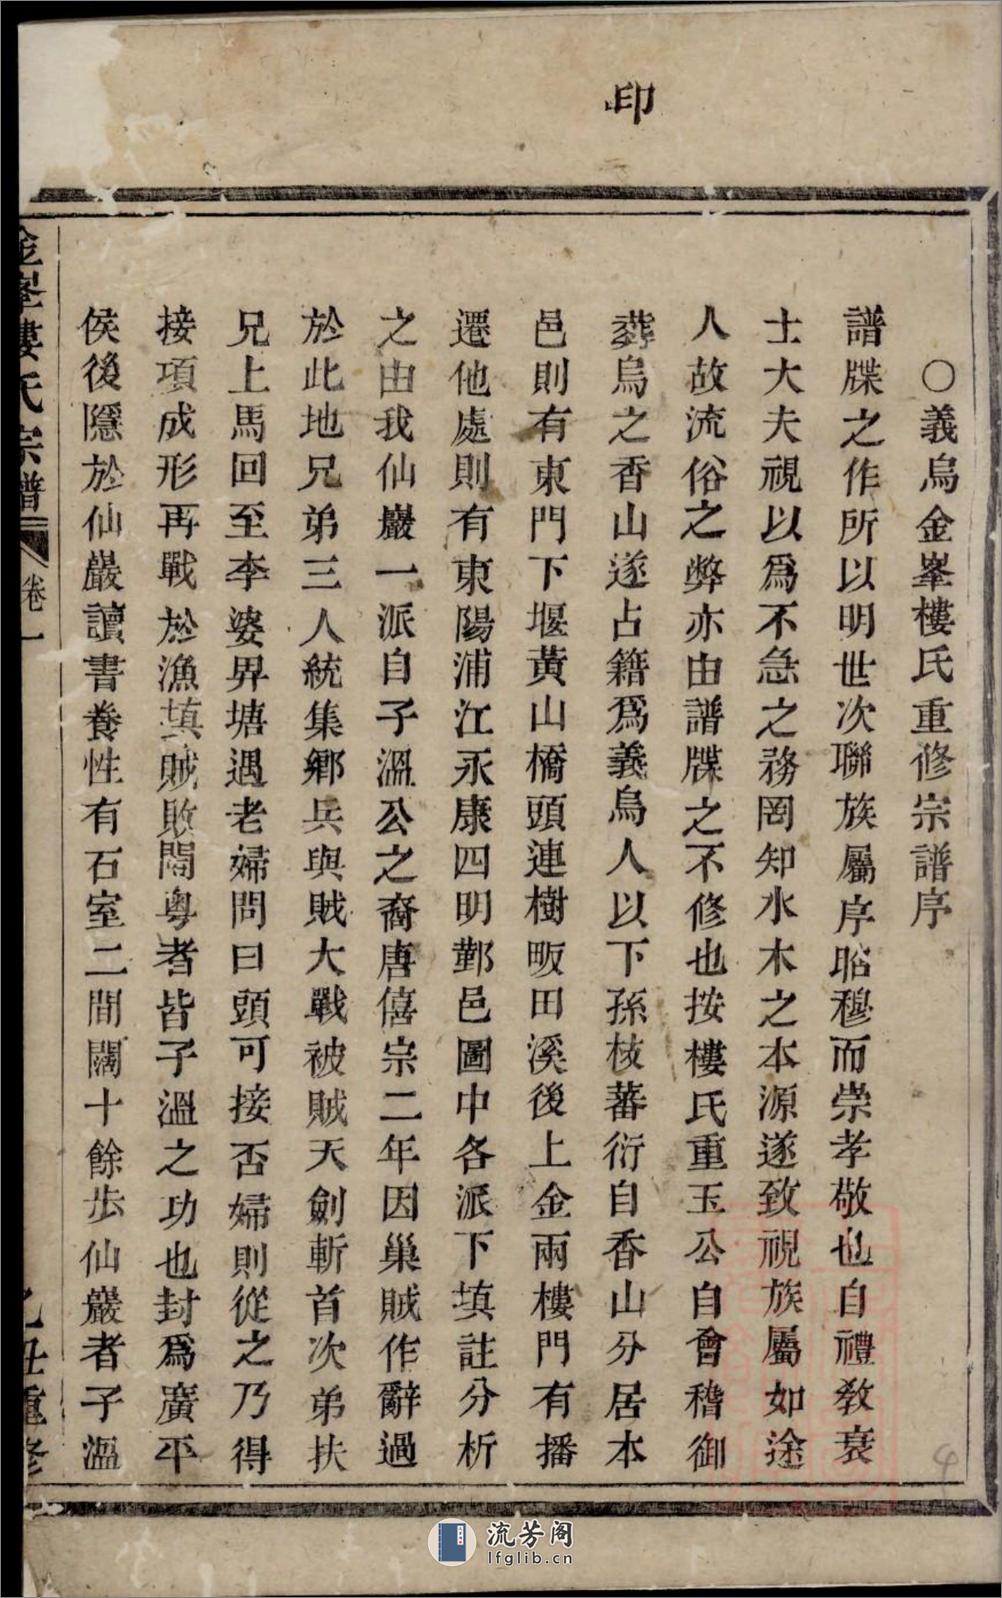 印
○義烏金峯樓氏重修宗譜序
譜牒之作所以明世次聯族屬序昭穆而崇孝敬也自禮教衰
士大夫視以爲不急之務罔知水木之本源遂致視族屬如途
人故流俗之弊亦由譜牒之不修也按樓氏重玉公自會稽御
葬烏之香山遂占籍爲義烏人以下孫枝蕃衍自香山分居本
邑則有東門下堰黄山橋頭連樹畈田溪後上金兩樓門有播
遷他處則有東陽浦江永康四明鄞邑圖中各派下填註分析
之由我仙巖一派自子溫公之裔唐僖宗二年因巢賊作辭過
於此地兄弟三人統集鄉兵與賊大戰被賊天劍斬首次弟扶
兄上馬回至李婆界塘遇老婦問曰頭可接否婦則從之乃得
接項成形再戰於漁填賊敗閩粵者皆子溫之功也封爲廣平
侯後隱於仙巖讀書養性有石室二間闊十餘步仙巖者子溫
金峯樓氏宗譜 卷一 乙丑重修
流芳阁
lfglib.cn